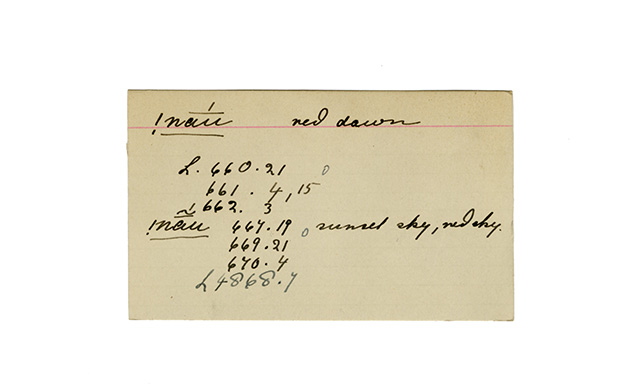 !nau red dawn
L. 660.21
661. 4, 15
662. 3
!nãu 667.19 sunset sky, red sky.
669.21
670.4
L 4868.7